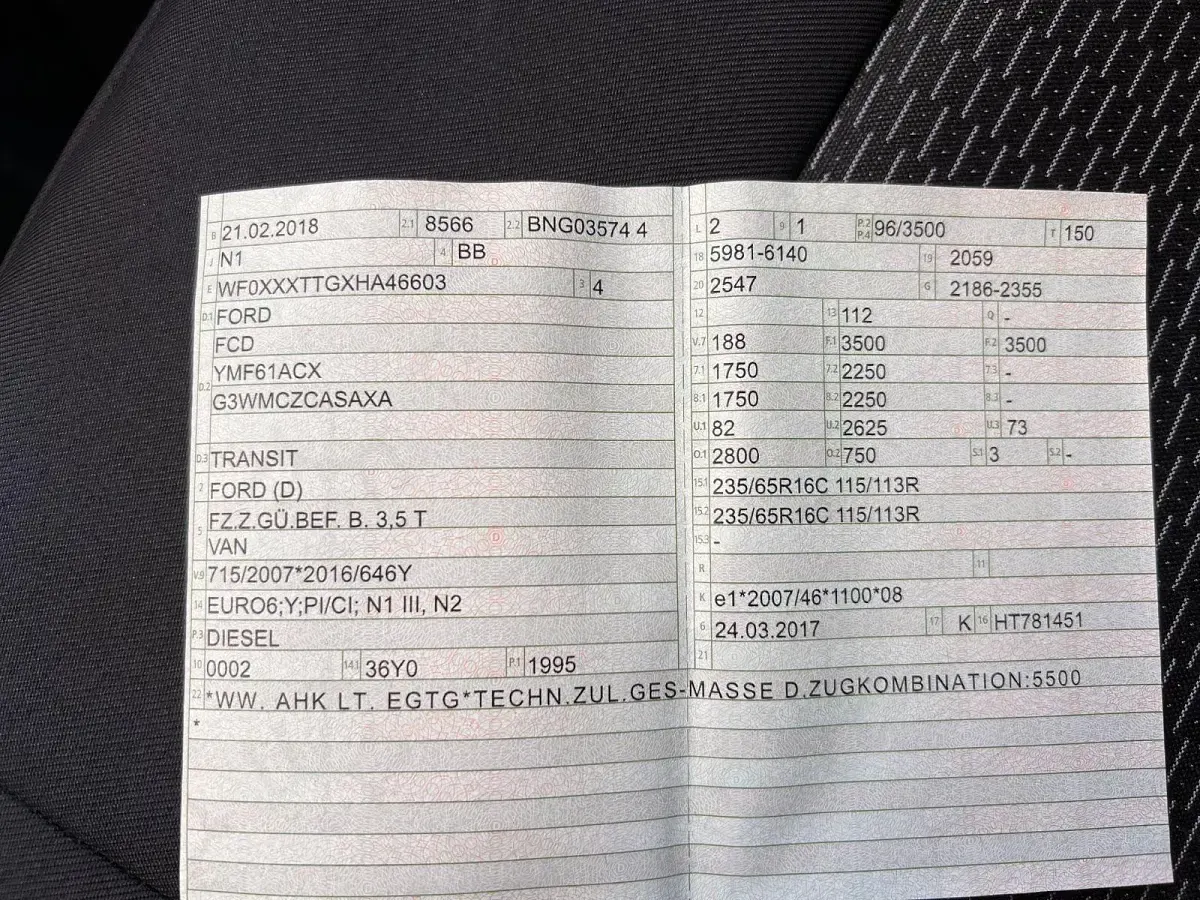 B 21.02.2018 2.1 8566 2.2 BNG03574 4
J N1 4 BB
E WF0XXXTTGXHA46603 3 4
D.1 FORD
FCD
D.2 YMF61ACX
G3WMCZCASAXA
D.3 TRANSIT
2 FORD (D)
5 FZ.Z.GÜ.BEF. B. 3,5 T
VAN
V.9 715/2007*2016/646Y
14 EURO6;Y;PI/CI; N1 III, N2
P.3 DIESEL
10 0002 14.1 36Y0 P.1 1995
L 2 9 1 P.2 P.4 96/3500 T 150
18 5981-6140 19 2059
20 2547 G 2186-2355
12 13 112 Q -
V.7 188 F.1 3500 F.2 3500
7.1 1750 7.2 2250 7.3 -
8.1 1750 8.2 2250 8.3 -
U.1 82 U.2 2625 U.3 73
O.1 2800 O.2 750 S.1 3 S.2 -
15.1 235/65R16C 115/113R
15.2 235/65R16C 115/113R
15.3 -
R 11
K e1*2007/46*1100*08
6 24.03.2017 17 K 16 HT781451
21
22 *WW. AHK LT. EGTG*TECHN.ZUL.GES-MASSE D.ZUGKOMBINATION:5500
*